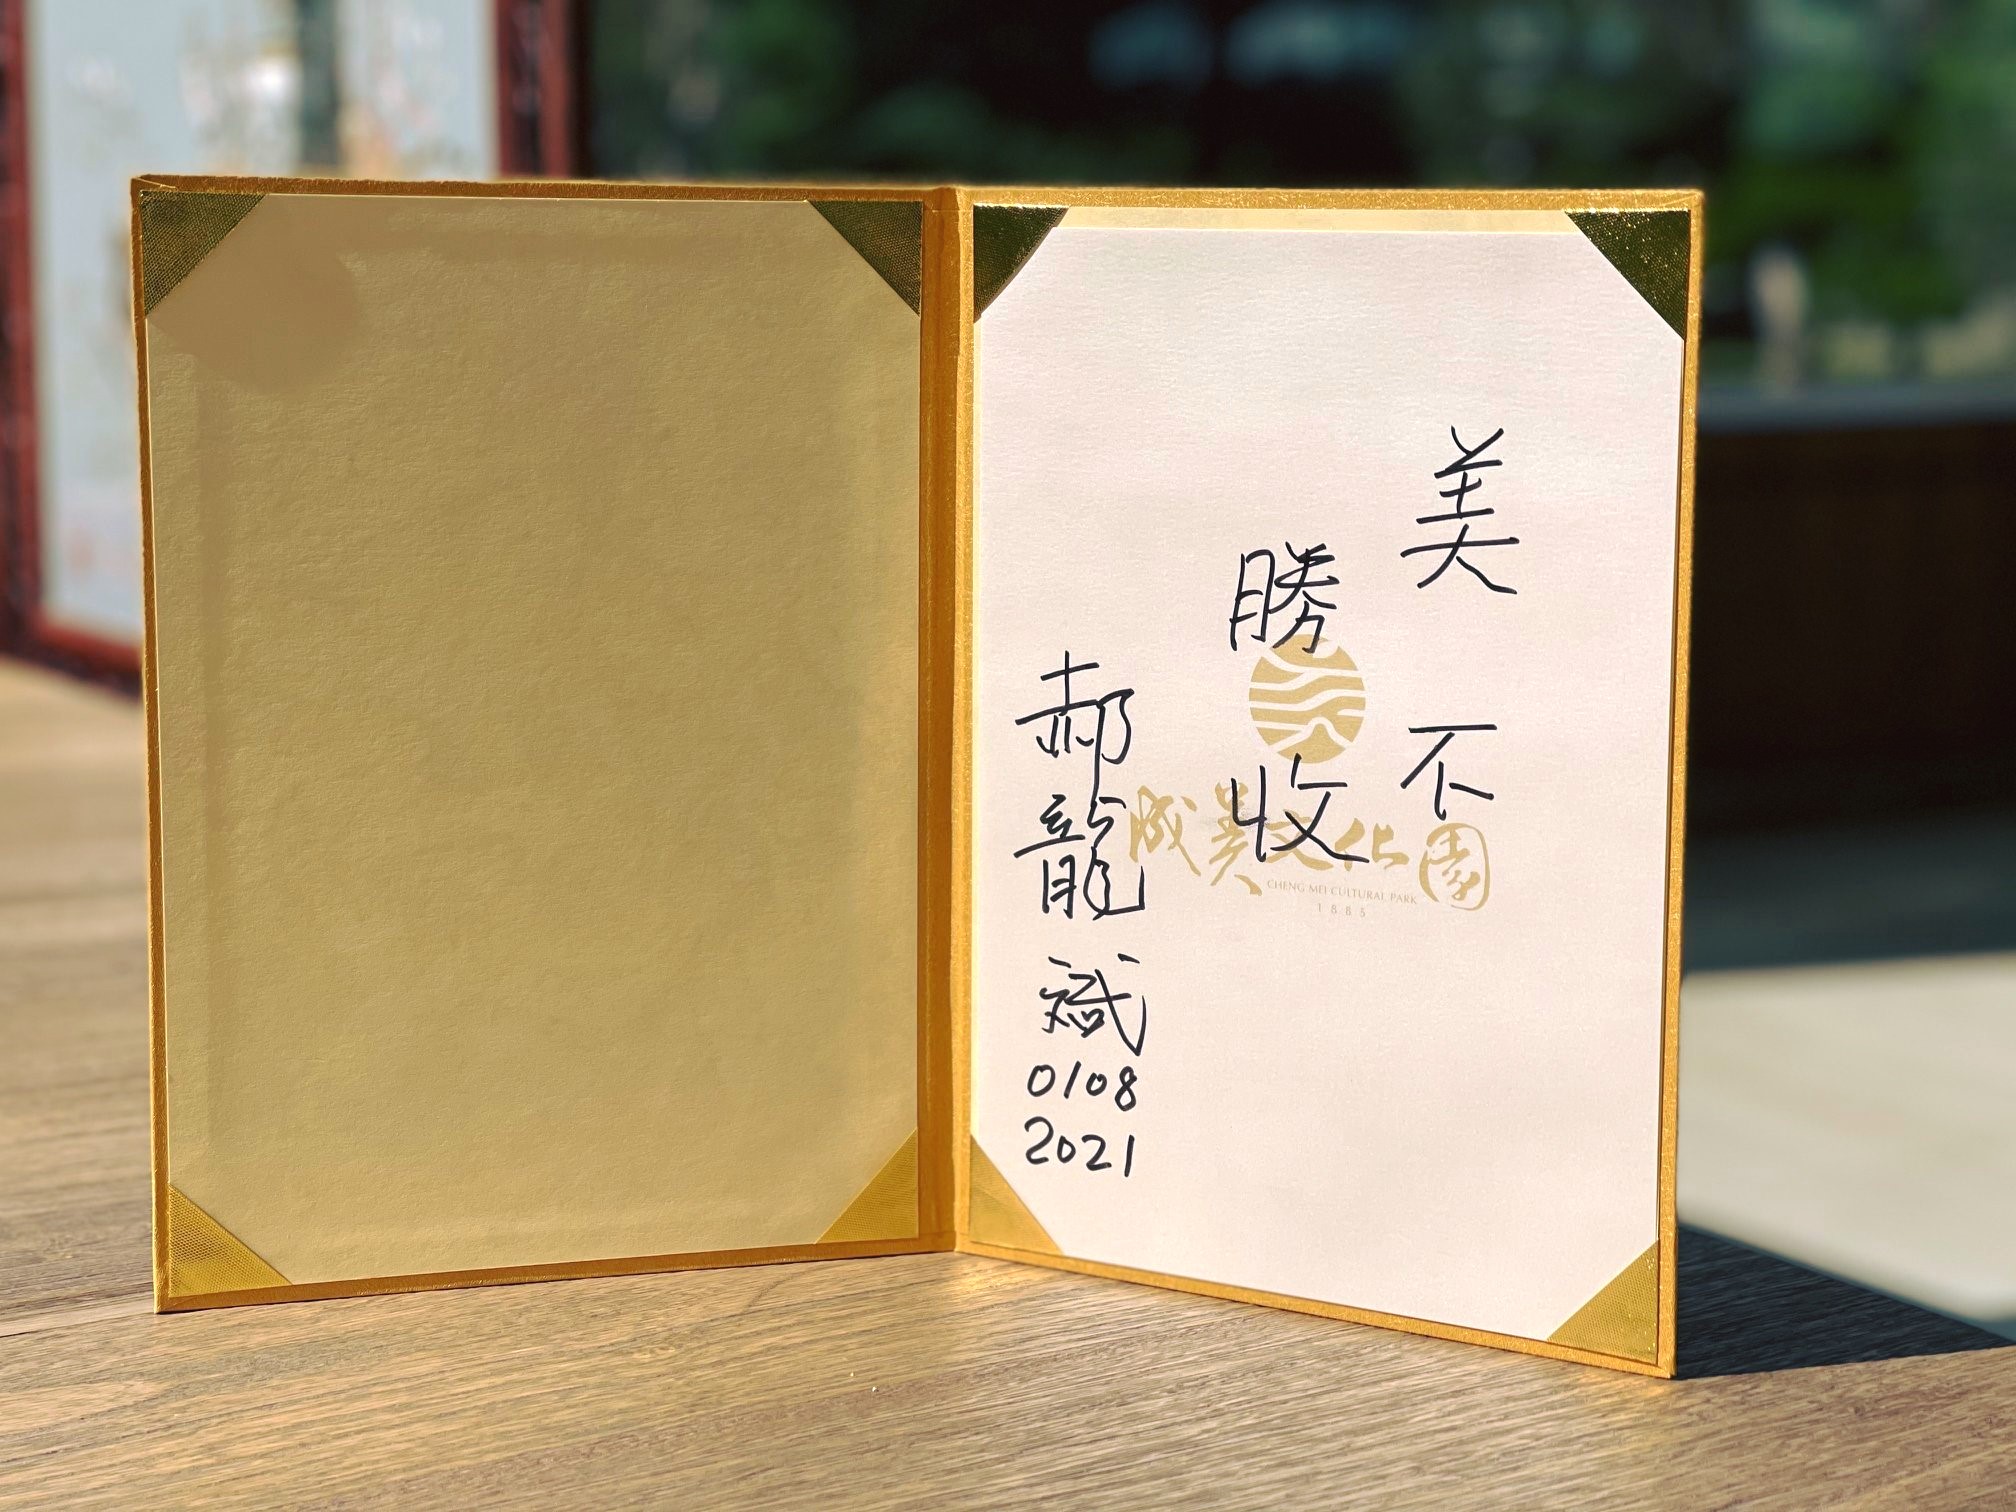 美不
勝收
郝龍斌
0108
2021
成美文化園
CHENG MEI CULTURAL PARK
1885